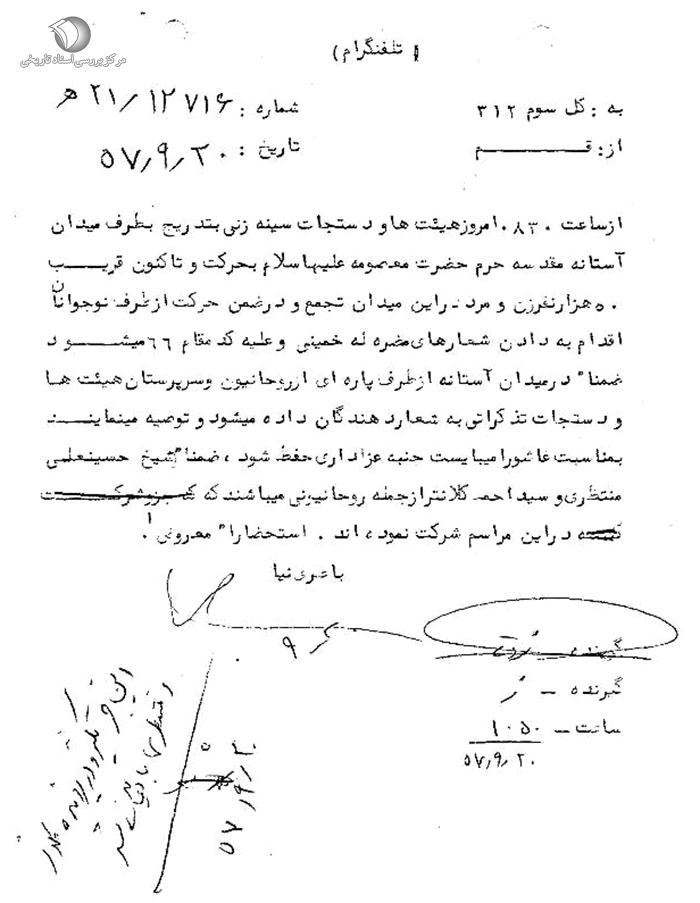 مرکز بررسی اسناد تاریخی
( تلفنگرام )
به : کل سوم ۳۱۲
شماره : ۲۱/۱۲۷۱۶ ه
از: قــــم
تاریخ : ۵۷٫۹٫۲۰
ازساعت ۸۳۰. امروزهیئت ها و دستجات سینه زنی بتدریج بطرف میدان
آستانه مقدسه حرم حضرت معصومه علیهاسلام بحرکت و تاکنون قریب
۵۰ هزارنفرزن و مرد دراین میدان تجمع و درضمن حرکت ازطرف نوجوانان
اقدام به دادن شعارهای مضره له خمینی وعلیه کد مقام ۶۶ میشود
ضمنا" درمیدان آستانه ازطرف پاره ای ازروحانیون وسرپرستان هیئت ها
و دستجات تذکراتی به شعاردهندگان داده میشود و توصیه مینمایند
بمناسبت عاشورا میبایست جنبه عزاداری حفظ شود ، ضمنا" شیخ حسینعلی
منتظری و سید احمد کلانتر ازجمله روحانیونی میباشند که
دراین مراسم شرکت نموده اند . استحضارا" معروض .
باصری نیا
گیرنده
گیرنده ـ
ساعت ـ ۱۰۵۰
۵۷٫۹٫۲۰
۵۷٫۹٫۲۰